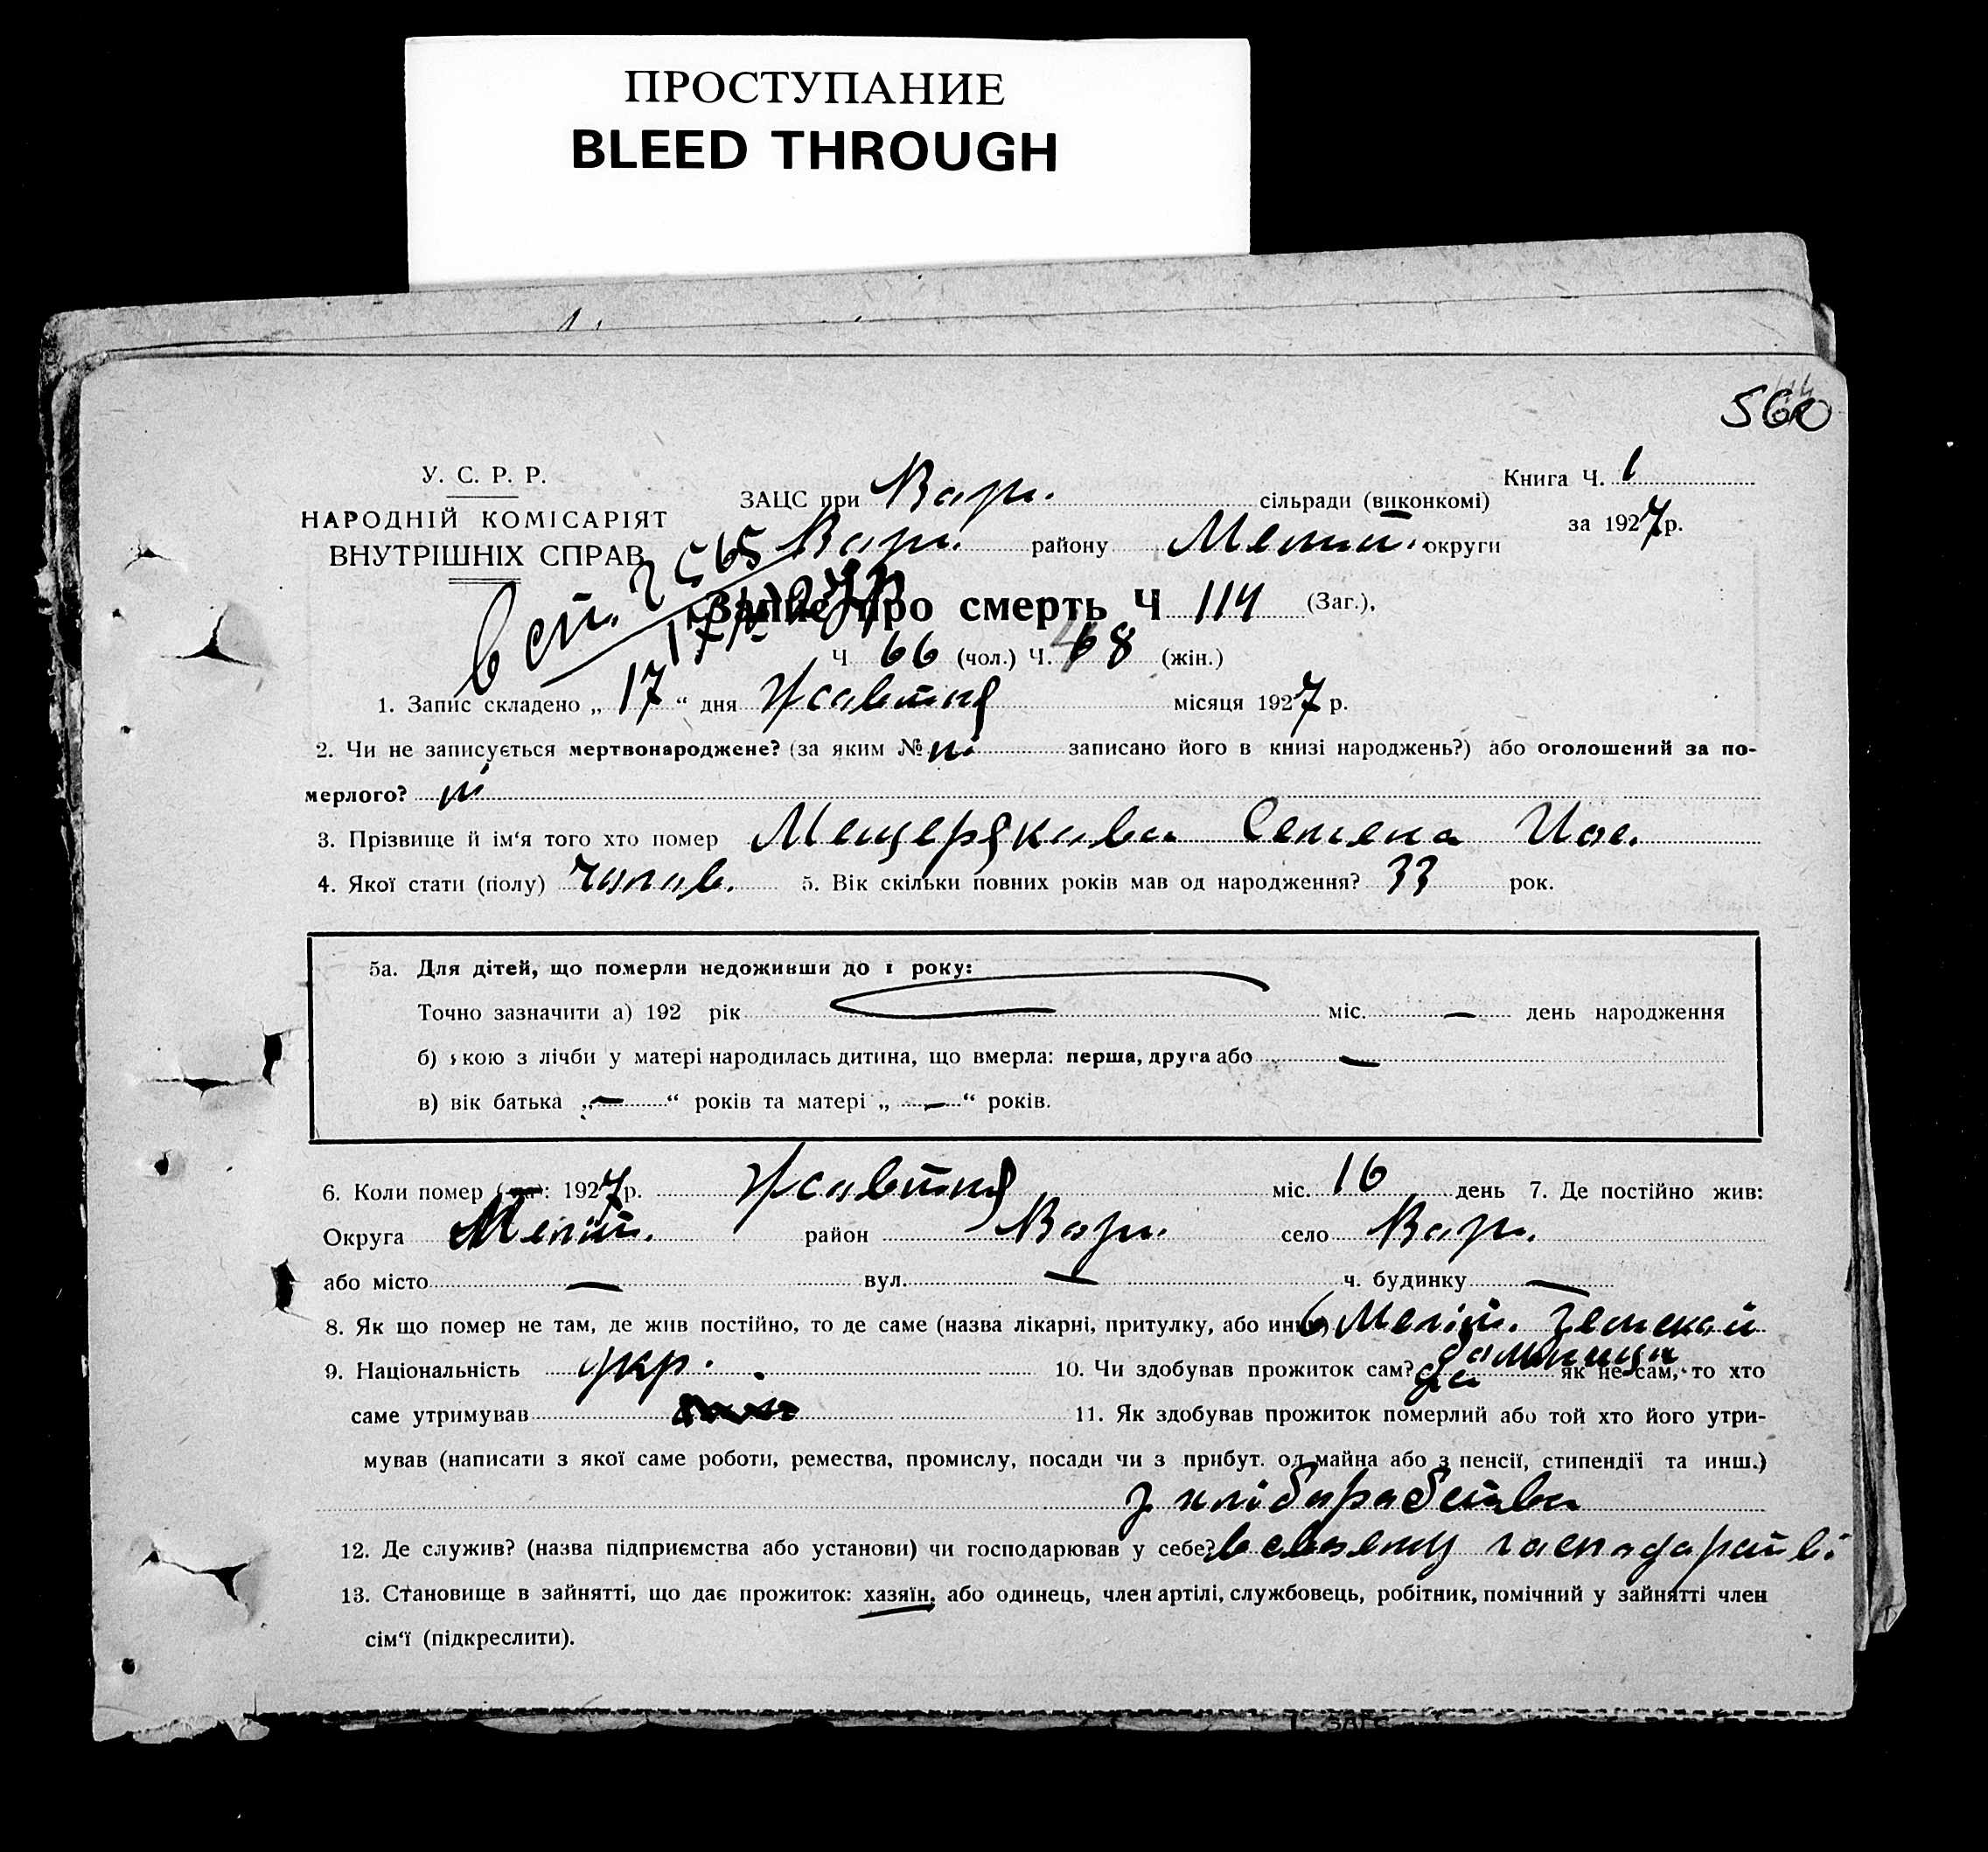 ПРОСТУПАНИЕ
BLEED THROUGH
560
У. С. Р. Р.
НАРОДНІЙ КОМІСАРІЯТ
ВНУТРІШНІХ СПРАВ
Книга Ч. 1
за 1927 р.
ЗАЦС при Вар. сільради (виконкомі)
Вар. району Меліт. округи
Запис про смерть Ч 114 (Заг.),
Ч 66 (чол.) Ч. 48 (жін.)
1. Запис складено „ 17 “ дня Жовтня місяця 1927 р.
2. Чи не записується мертвонароджене? (за яким № ні записано його в книзі народжень?) або оголошений за по-
мерлого? ні
3. Прізвище й ім‘я того хто помер Мещерякова Семена Иос.
4. Якої стати (полу) чолов. 5. Вік скільки повних років мав од народження? 33 рок.
5а. Для дітей, що померли недоживши до 1 року:
Точно зазначити а) 192 рік міс. — день народження
б) якою з лічби у матері народилась дитина, що вмерла: перша, друга або —
в) вік батька „ — “ років та матері „ — “ років.
6. Коли помер (-ла): 1927 р. Жовтня міс. 16 день 7. Де постійно жив:
Округа Меліт. район Вар. село Вар.
або місто — вул. — ч. будинку —
8. Як що помер не там, де жив постійно, то де саме (назва лікарні, притулку, або инше) в Меліт. Земской
больници
9. Національність укр. 10. Чи здобував прожиток сам? да як не сам, то хто
саме утримував 11. Як здобував прожиток померлий або той хто його утри-
мував (написати з якої саме роботи, ремества, промислу, посади чи з прибут. од майна або з пенсії, стипендії та инш.)
з хліборобства
12. Де служив? (назва підприємства або установи) чи господарював у себе? в своему господарстві.
13. Становище в зайнятті, що дає прожиток: хазяїн, або одинець, член артілі, службовець, робітник, помічний у зайнятті член
сім‘ї (підкреслити).